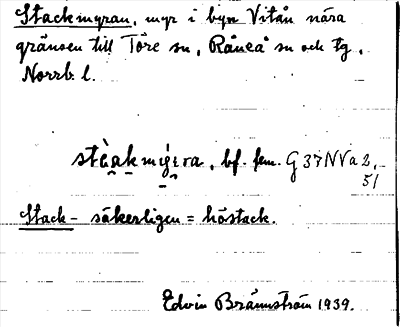 Stackmyran, myr i byn Vitån nära
gränsen till Töre sn, Råneå sn och tg,
Norrb. l.
bf. fem. G 37 NVa 2,
51
Stack- säkerligen = höstack.
Edvin Brännström 1939.